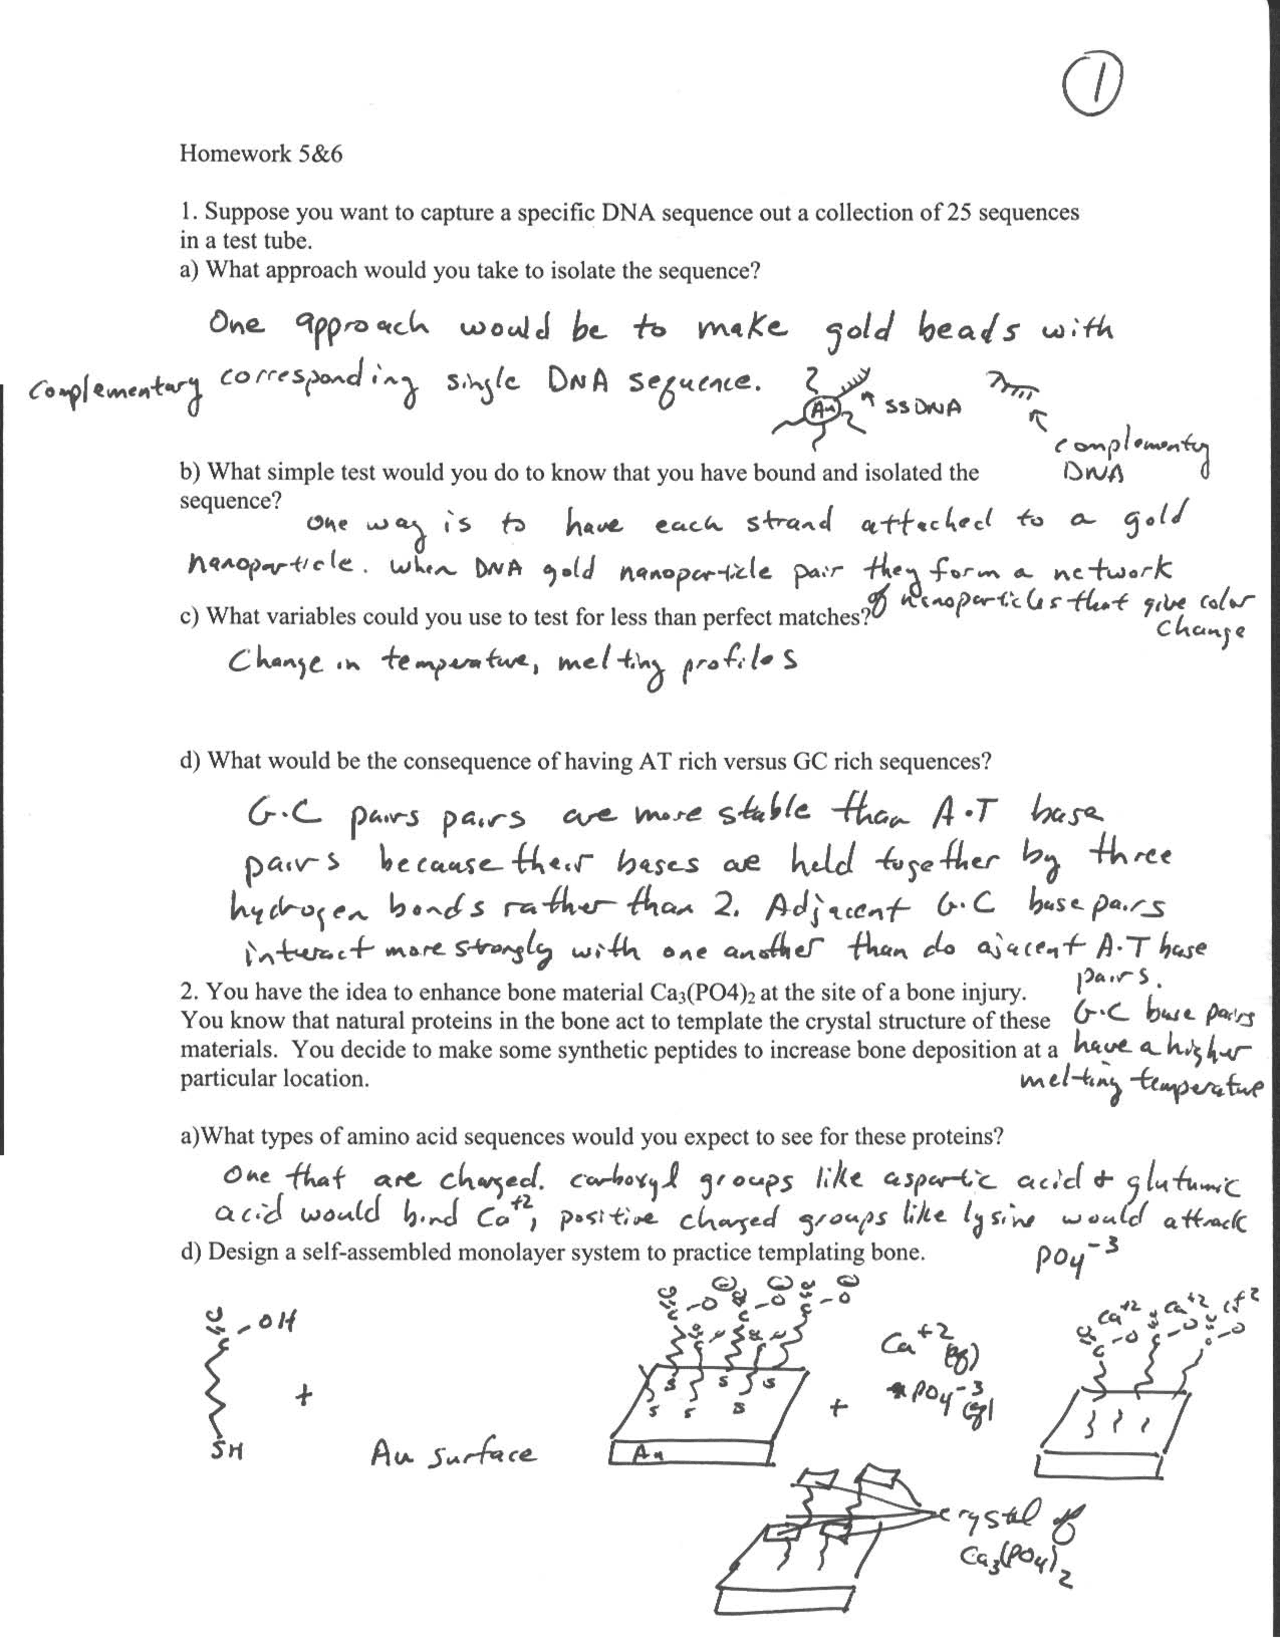 1
Homework 5&6
1. Suppose you want to capture a specific DNA sequence out a collection of 25 sequences
in a test tube.
a) What approach would you take to isolate the sequence?
One approach would be to make gold beads with
complementary corresponding single DNA sequence.
Au
ssDNA
complementy
DNA
b) What simple test would you do to know that you have bound and isolated the
sequence?
One way is to have each strand attached to a gold
nanoparticle. when DNA gold nanoparticle pair they form a network
of nanoparticles that give color
change
c) What variables could you use to test for less than perfect matches?
Change in temperature, melting profiles
d) What would be the consequence of having AT rich versus GC rich sequences?
G·C pairs pairs are more stable than A·T base
pairs because their bases are held together by three
hydrogen bonds rather than 2. Adjacent G·C base pairs
interact more strongly with one another than do ajacent A·T base
pairs.
G·C base pairs
have a higher
melting temperature
2. You have the idea to enhance bone material Ca3(PO4)2 at the site of a bone injury.
You know that natural proteins in the bone act to template the crystal structure of these
materials. You decide to make some synthetic peptides to increase bone deposition at a
particular location.
a)What types of amino acid sequences would you expect to see for these proteins?
One that are charged. carboxyl groups like aspartic acid + glutumic
acid would bind Ca+2, positive charged groups like lysine would attrack
PO4-3
d) Design a self-assembled monolayer system to practice templating bone.
O
C-OH
SH
+
Au surface
S S S
S S S
Au
+
Ca+2
PO4-3
Ca+2 Ca+2
crystal of
Ca3(PO4)2